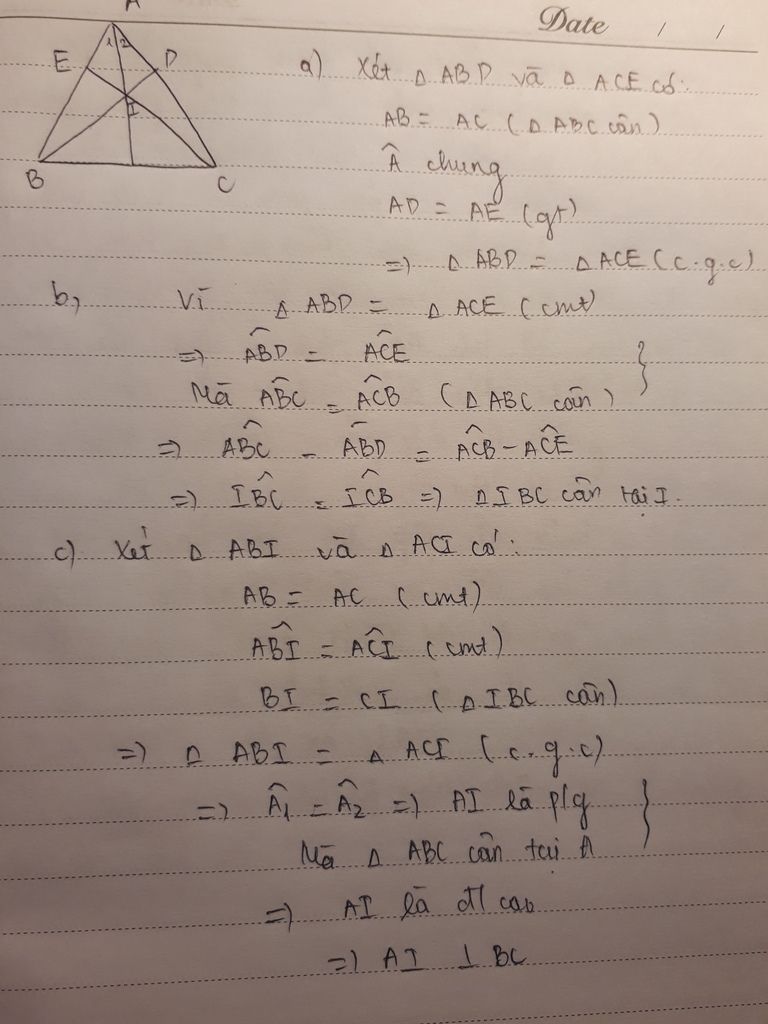 Date / /
A
1 2
E D
I
B C
a) Xét Δ ABD và Δ ACE có:
AB = AC (Δ ABC cân)
Â chung
AD = AE (gt)
=) Δ ABD = Δ ACE (c.g.c)
b, Vì Δ ABD = Δ ACE (cmt)
=) ABD^ = ACE^
Mà ABC^ = ACB^ (Δ ABC cân) }
=) ABC^ - ABD^ = ACB^ - ACE^
=) IBC^ = ICB^ =) Δ IBC cân tại I.
c) Xét Δ ABI và Δ ACI có:
AB = AC (cmt)
ABI^ = ACI^ (cmt)
BI = CI (Δ IBC cân)
=) Δ ABI = Δ ACI (c.g.c)
=) Â1 = Â2 =) AI là p/g
Mà Δ ABC cân tại A }
=) AI là đ/ cao
=) AI ⊥ BC